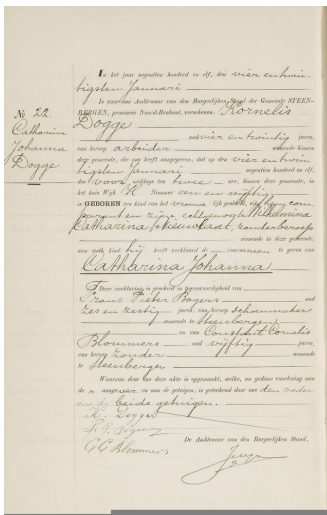 In het jaar negentien honderd en elf, den vier en twin-
tigsten Januari
is voor ons Ambtenaar van den Burgerlijken Stand der Gemeente STEEN-
BERGEN, provincie Noord-Brabant, verschenen: Kornelis
No 22.
Catharina
Johanna
Dogge
Dogge
oud vier en twintig jaren,
van beroep arbeider wonende binnen
deze gemeente, die ons heeft aangegeven, dat op den vier en twin-
tigsten Januari negentien honderd en elf,
des voor middags ten twee ure, binnen deze gemeente, in
het huis Wijk H Nummer een en vijftig
is GEBOREN een kind van het vrouwelijk geslacht, uit hem com-
parant en zijne echtgenoote Wilhelmina
Catharina Nieuwstadt, zonder beroep
wonende in deze gemeente,
aan welk kind hij heeft verklaard de voornamen te geven van
Catharina Johanna
Deze verklaring is geschied in tegenwoordigheid van
Frans Pieter Bogers oud
zes en zestig jaren, van beroep schoenmaker
wonende te Steenbergen
en van Constant Cornelis
Blommers oud vijftig jaren,
van beroep zonder wonende
te Steenbergen
Waarvan door ons deze akte is opgemaakt, welke, na gedane voorlezing aan
de aangever en aan de getuigen, is geteekend door ons den vader
en de beide getuigen.
K. Dogge
De Ambtenaar van den Burgerlijken Stand,